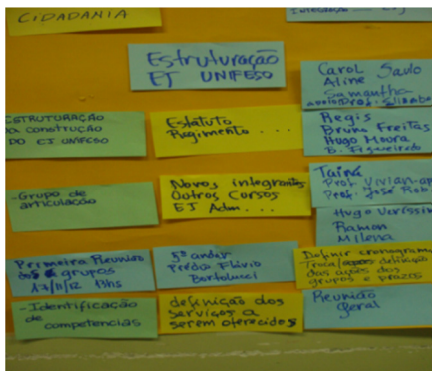 CIDADANIA
Estruturação
EJ UNIFESO
Carol Saulo
Aline
Samantha
ESTRUTURAÇÃO
DA CONSTRUÇÃO
DO EJ UNIFESO
Estatuto
Rugimento . . .
Regis
Bruno Freitas
Hugo Moora
B. Figueiredo
-Grupo de
articulação
Novos integrantes
Outros Cursos
EJ Adm. . .
Tainá
Prof Vivian-ap
Prof. José Rob
Hugo Veríssim
Ramon
Milena
Primeira Reunião
dos grupos
17/11/12 13hs
5º andar
Prédio Flávio
Bortoluzzi
Definir cronograma
Troca/ delegação
das ações dos
grupos e prazos
-Identificação
de
competencias
definição dos
serviços a
serem oferecidos
Reunião
Geral